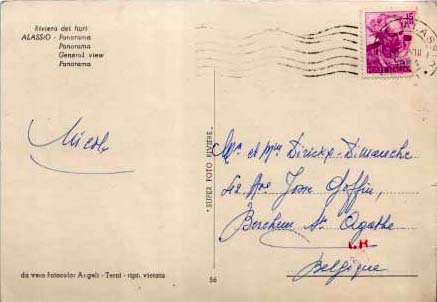 Riviera dei fiori
ALASSIO - Panorama
Panorama
General view
Panorama
15
POSTE ITALIANE
ALASSIO
Nicole
"SUPER FOTO RIVIERE"
Mr et Mme Dirickx-Dimanche
42 Ave Jean Goffin,
Berchem Ste Agathe
Belgique
da vero Fotocolor Angeli - Terni - ripr. vietata
56